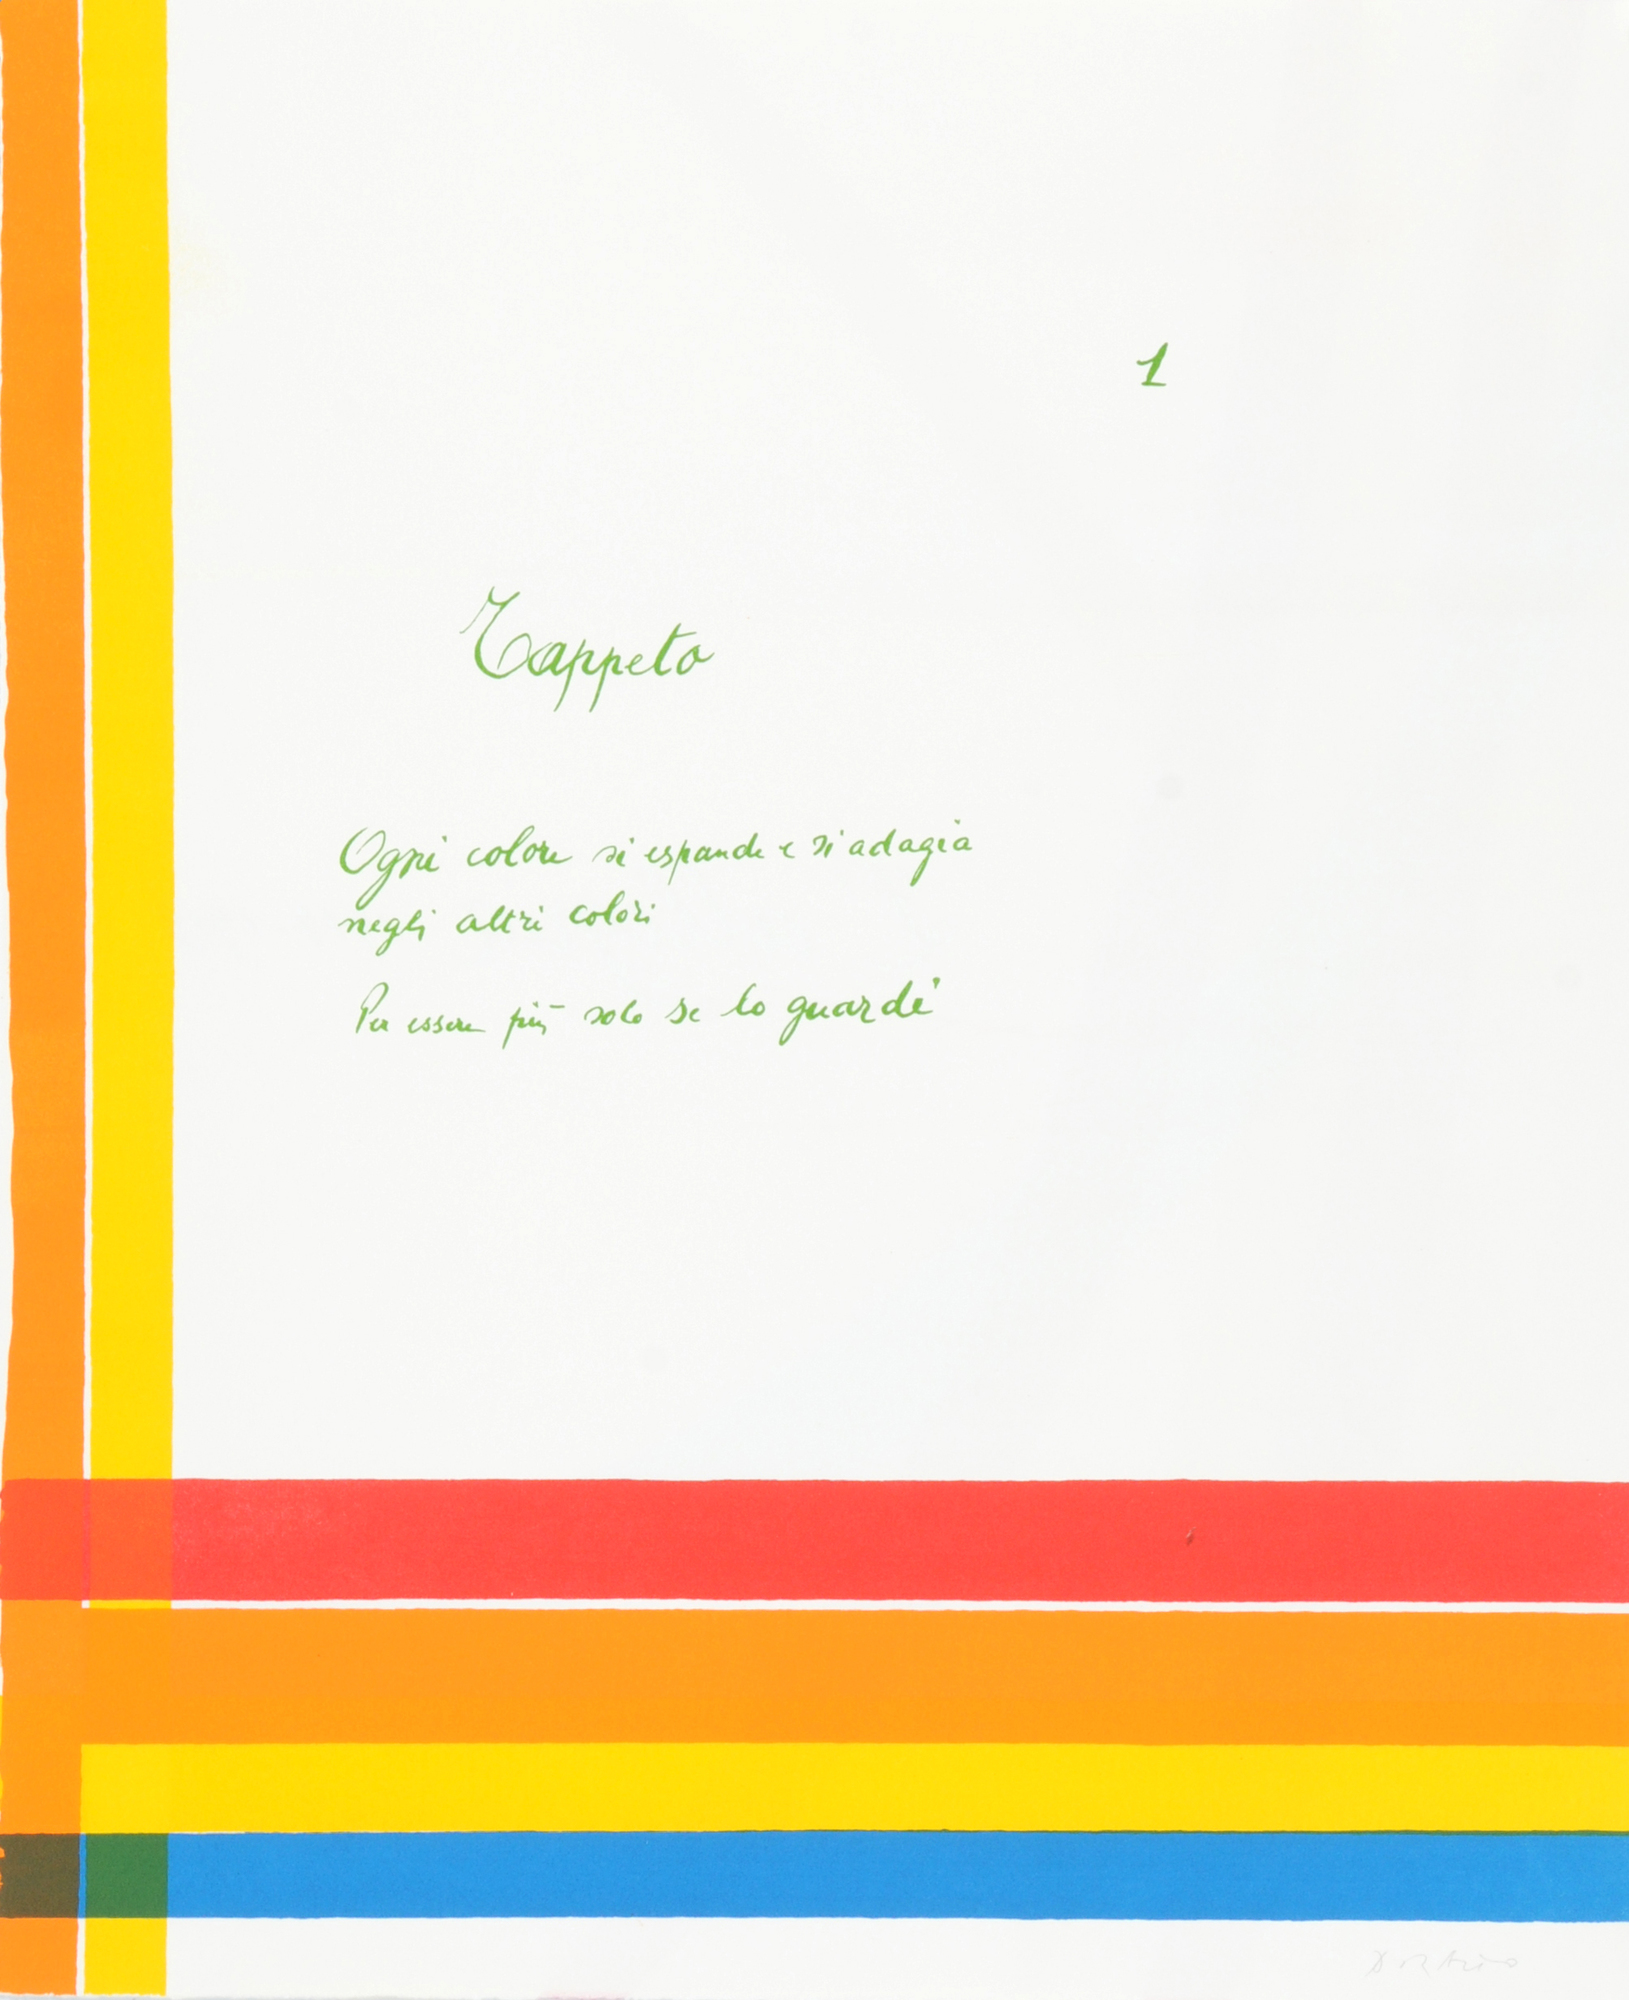 1
Tappeto
Ogni colore si espande e si adagia
negli altri colori
Per essere più solo se lo guardi
Dorazio